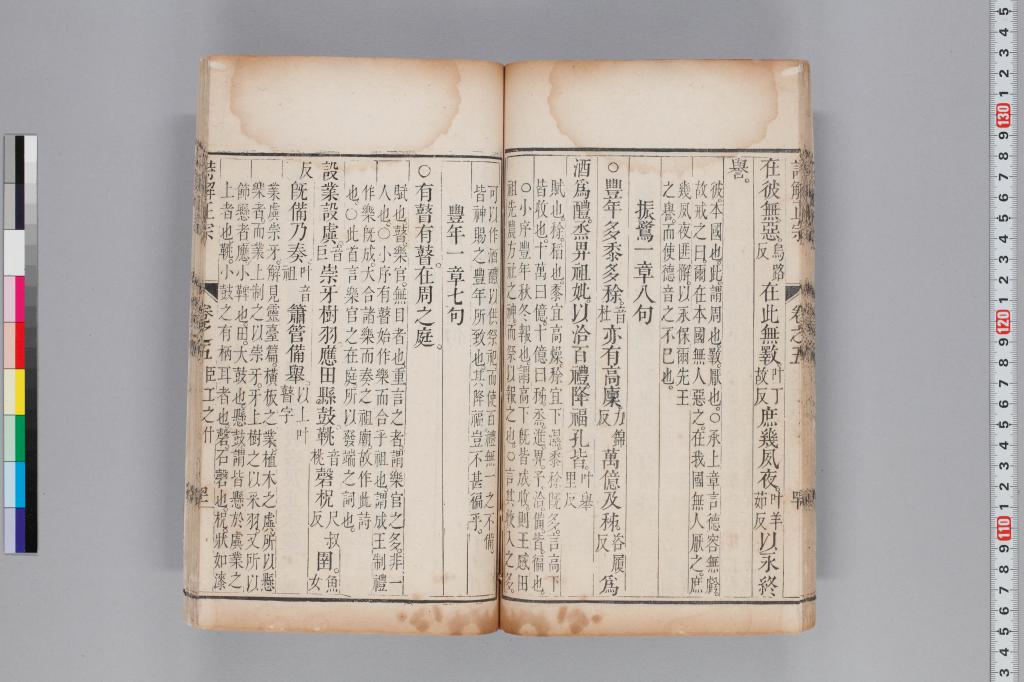 在彼無惡烏路反在此無斁叶丁故反庶幾夙夜叶羊茹反以永終
譽。
彼本國也此謂周也斁厭也○承上章言德容無斁
故戒之曰爾在本國無人惡之在我國無人厭之庶
幾夙夜匪懈以永保爾先王
之譽而使德音之不已也
振鷺一章八句
○豐年多黍多稌音杜亦有高廩力錦反萬億及秭咨履反爲
酒爲醴烝畀祖妣以洽百禮降福孔皆叶舉里反
賦也稌稻也黍宜高燥稌宜下濕黍稌既多言高下
皆收也十萬曰億十億曰秭烝進畀予洽備皆徧也
○小序豐年秋冬報也謂高下既皆成收則王感田
祖先農方社之神而祭以報之也○言其收入之多
可以作酒醴以供祭祀而使百禮無一之不備
皆神賜之豐年所致也其降福豈不甚徧乎
豐年一章七句
○有瞽有瞽在周之庭。
賦也瞽樂官無目者也重言之者謂樂官之多非一
人也○小序有瞽始作樂而合乎祖也謂成王制禮
作樂既成大合諸樂而奏之祖廟故作此詩
也○此首言樂官之在庭所以發端之詞也
設業設虡音巨崇牙樹羽應田縣鼓鞉音桃磬柷尺叔反圉魚女
反既備乃奏叶音祖簫管備舉以上叶瞽字
業虡崇牙解見靈臺篇橫板之業植木之虡所以懸
樂者而業上制之以崇牙牙上樹之以采羽又所以
飾懸者應小鞞也田大鼓也懸鼓謂皆懸於虡業之
上者也鞉小鼓之有柄耳者也磬石磬也柷狀如漆
詩解正宗 卷之五 臣工之什